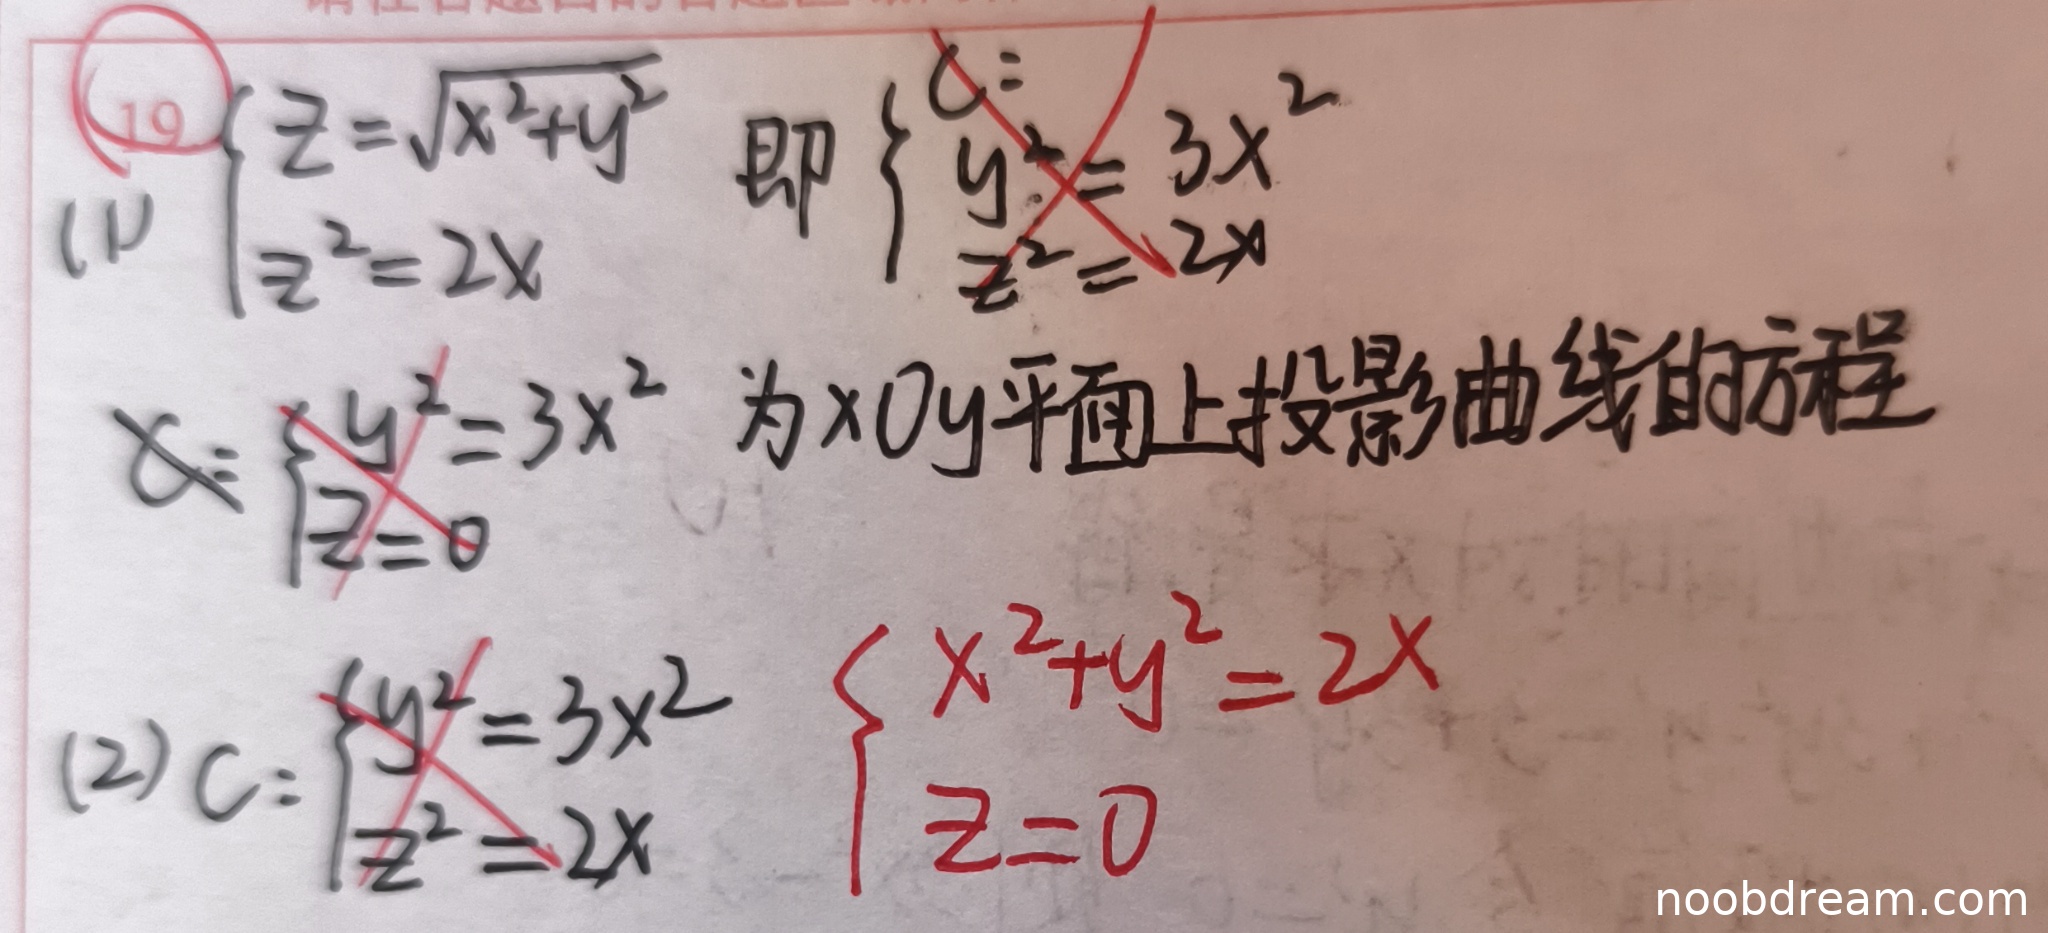 19
(1) { z = √(x²+y²)
z² = 2x
即 { C:
y² = 3x²
z² = 2x
{ y² = 3x²
z = 0
为xOy平面上投影曲线的方程
(2) C: { y² = 3x²
z² = 2x
{ x²+y² = 2x
z = 0
noobdream.com